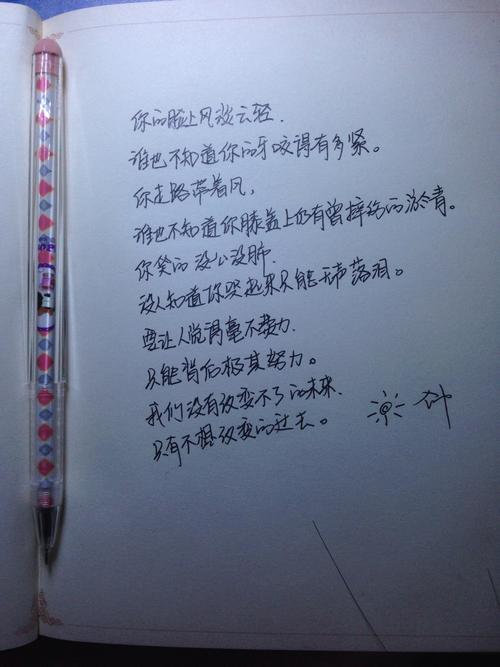 你的脸上风淡云轻.
谁也不知道你的牙咬得有多紧。
你走路带着风,
谁也不知道你膝盖上仍有曾摔伤的淤青。
你笑的没心没肺.
没人知道你哭起来只能无声落泪。
要让人觉得毫不费力.
只能背后极其努力。
我们没有改变不了的未来.
只有不想改变的过去。